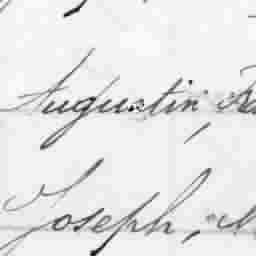 Augustin,
Joseph,